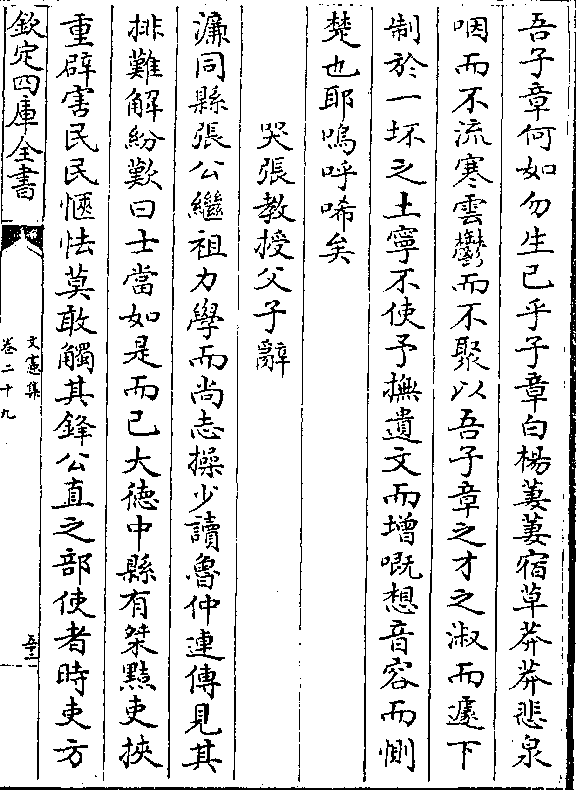 吾子章何如勿生已乎子章白楊萋萋宿草莽莽悲泉
咽而不流寒雲鬱而不聚以吾子章之才之淑而遽下
制於一坏之土寧不使予撫遺文而增嘅想音容而惻
楚也耶嗚呼唏矣
哭張教授父子辭
濂同縣張公繼祖力學而尚志操少讀魯仲連傳見其
排難解紛歎曰士當如是而已大德中縣有桀黠吏挾
重辟害民民愜怯莫敢觸其鋒公直之部使者時吏方
欽定四庫全書
文憲集
卷二十九